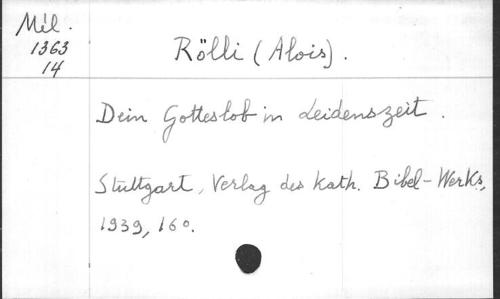 Mél.
1363
14
Rölli (Alois).
Dein Gotteslob in Leidenszeit.
Stuttgart, Verlag des Kath. Bibel-Werks,
1939, 16°.